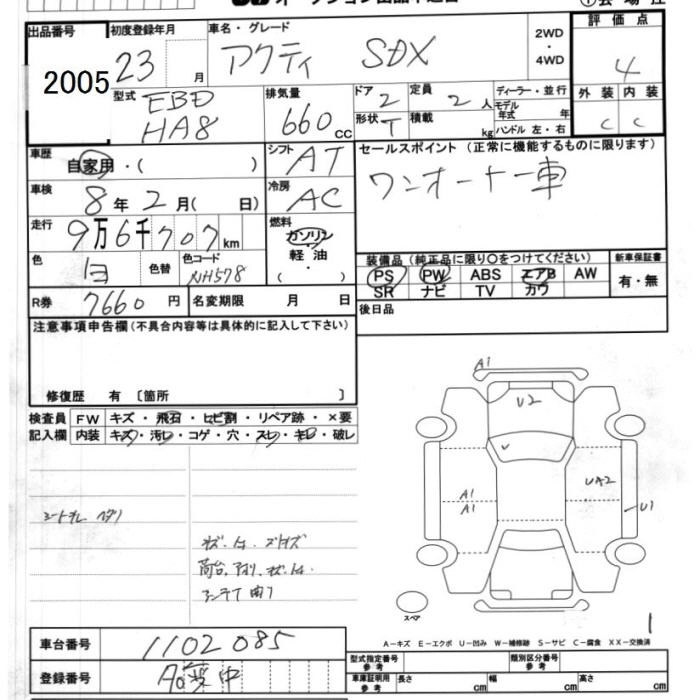 出品番号 初度登録年月 車名・グレード 2WD・4WD 評価点
2005 23 月 アクティ SDX 4
型式 EBD HA8 排気量 660 CC ドア 2 定員 2 人 ディーラー・並行 外装 内装
形状 T 積載 kg モデル年式 年 ハンドル 左・右 C C
車歴 自家用・( ) シフト AT セールスポイント (正常に機能するものに限ります)
車検 8年 2月( 日) 冷房 AC ワンオーナー車
走行 9万6千707 km 燃料 ガソリン 軽油 ・ ( )
色 白 色替 色コード NH578 装備品 (純正品に限り〇をつけてください) 新車保証書
PS PW ABS エアB AW 有・無
SR ナビ TV カワ
R券 7660 円 名変期限 月 日 後日品
注意事項申告欄(不具合内容等は具体的に記入して下さい)
修復歴 有 〔箇所 〕
検査員 FW キズ・飛石・ヒビ割・リペア跡・×要
記入欄 内装 キズ・汚レ・コゲ・穴・スレ・キレ・破レ
A1
U2
A1
A1
UA2
U1
スペア
1
A-キズ E-エクボ U-凹み W-補修跡 S-サビ C-腐食 XX-交換済
車台番号 1102085
登録番号
型式指定番号 参考 類別区分番号 参考
車庫証明用 参考 長さ cm 幅 cm 高さ cm